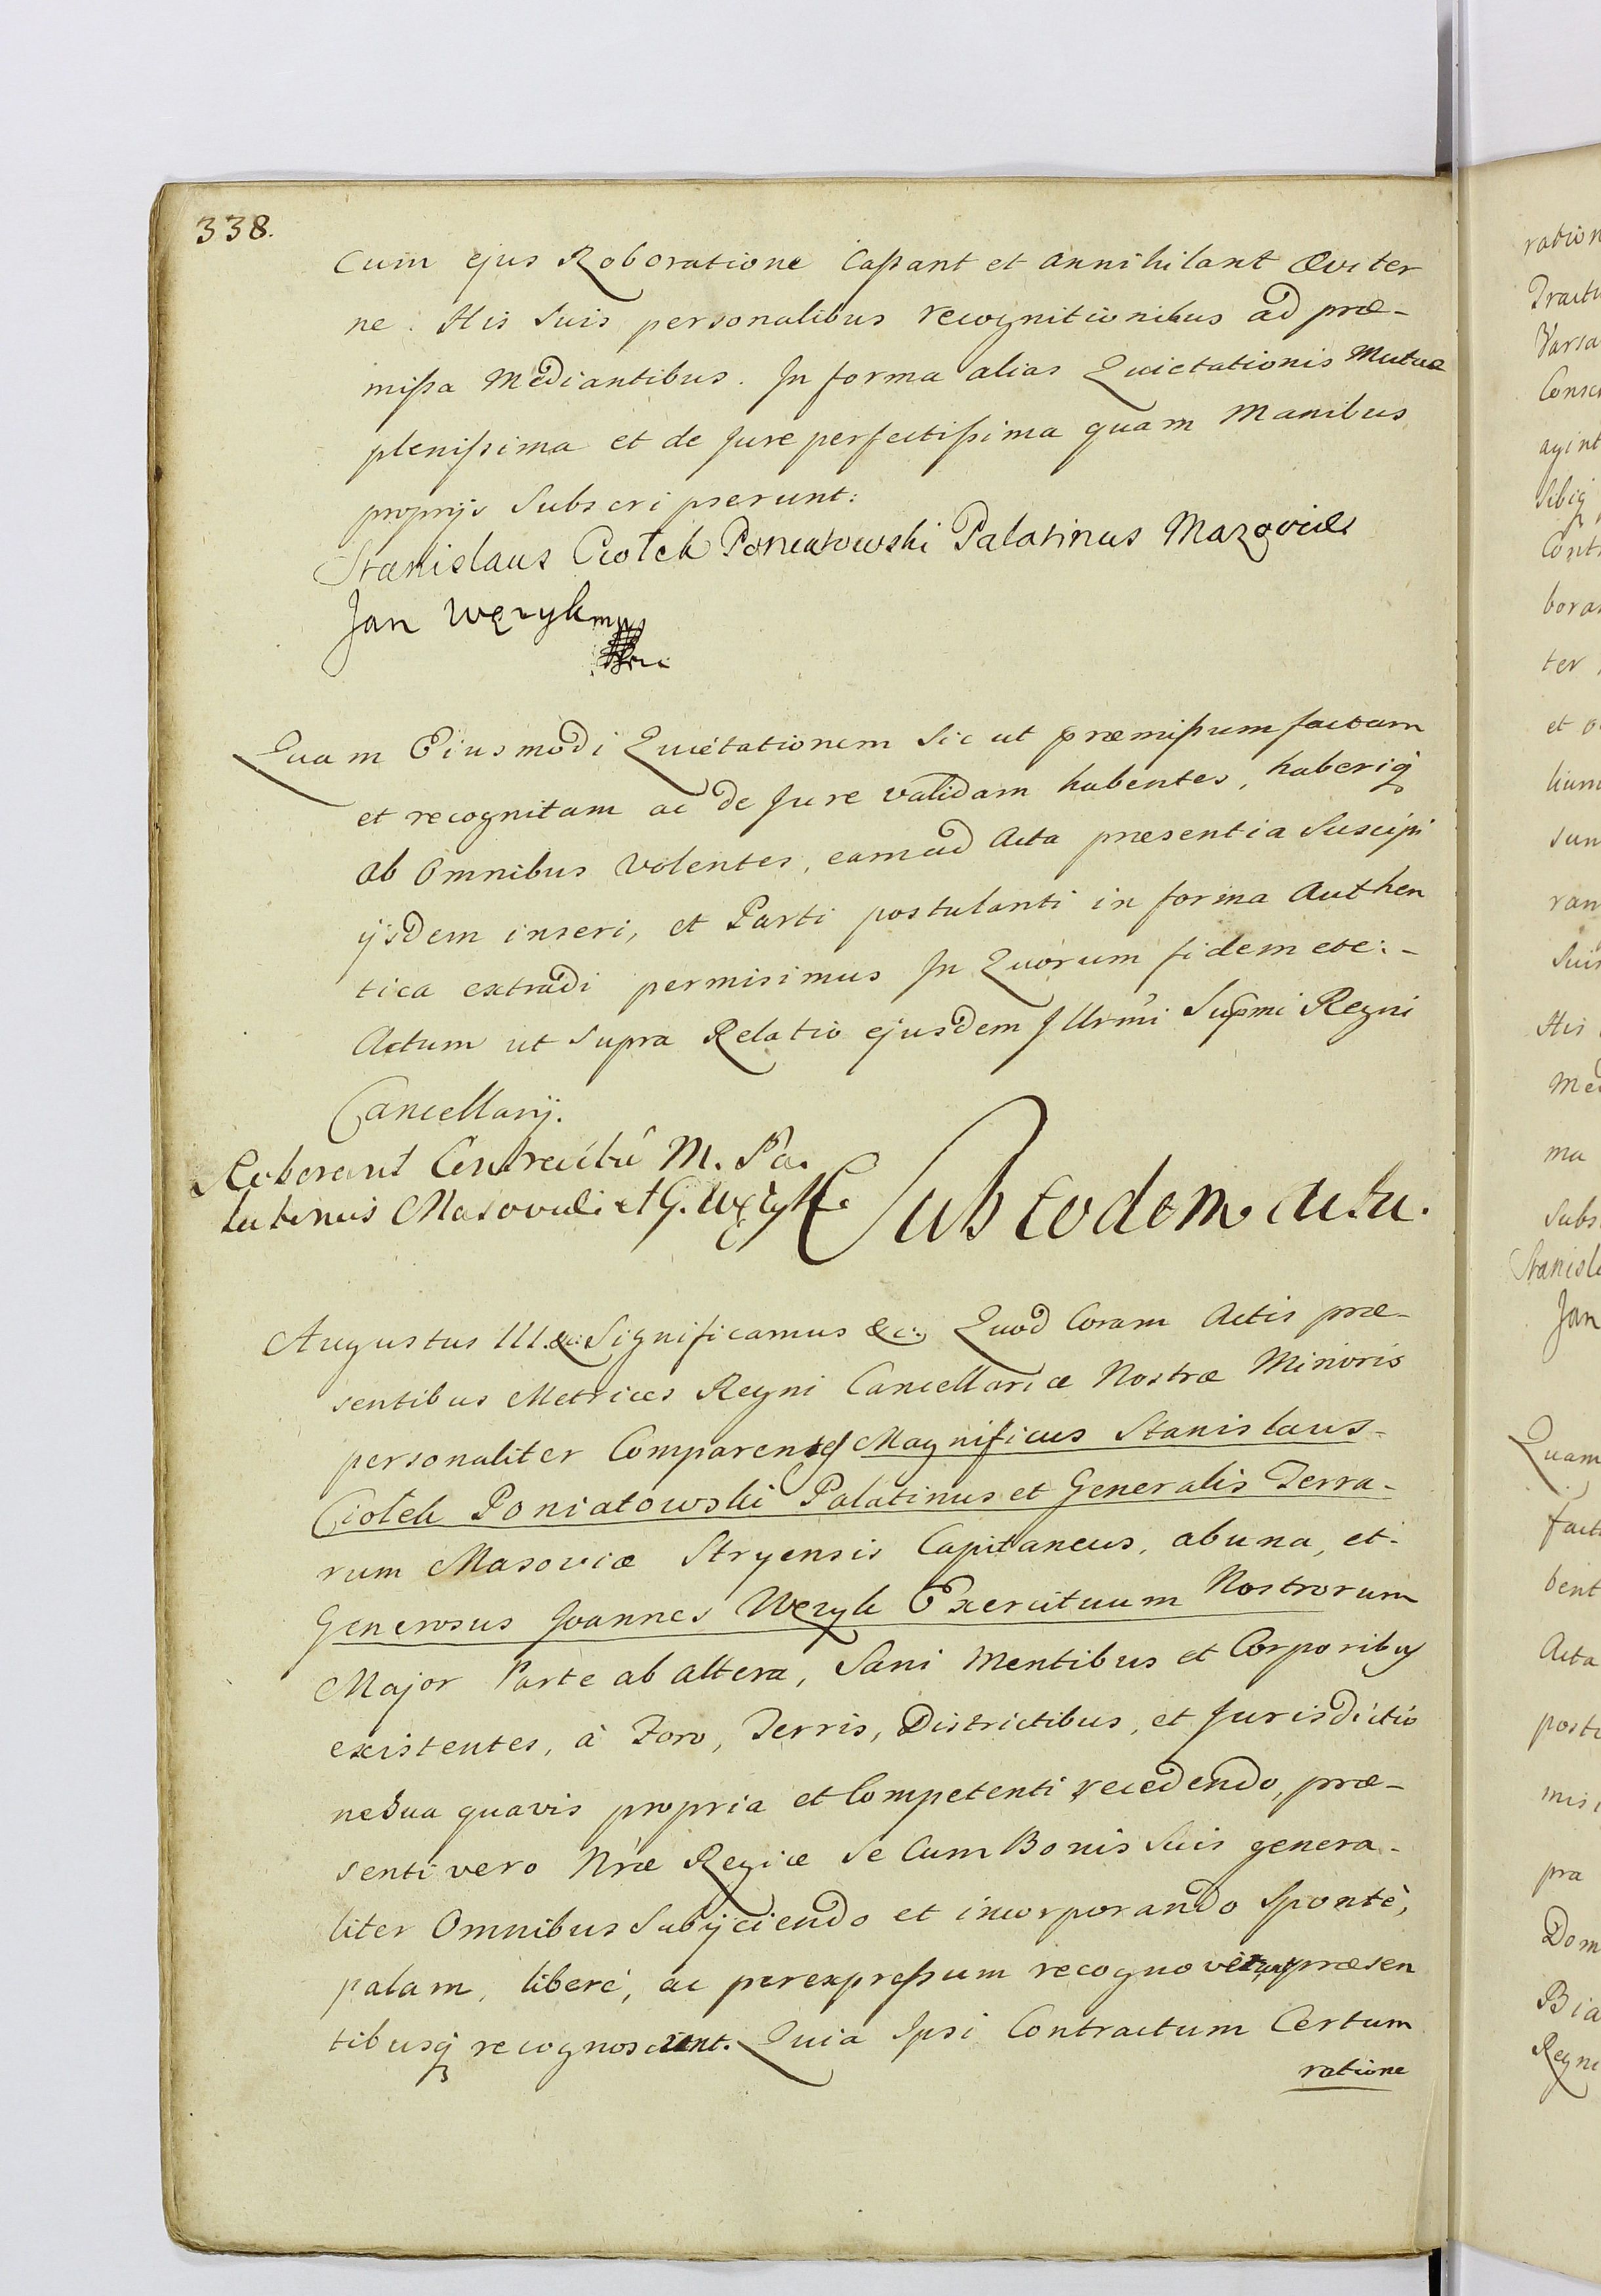 338.
Cum ejus Roboratione Cassant et annihilant æviter
ne. His suis personalibus recognitionibus ad præ-
missa Mediantibus. In forma alias Quietationis Mutuæ
plenissima et de Jure perfectissima quam Manibus
proprijs Subscripserunt:
Stanislaus Ciołek Poniatowski Palatinus Mazoviæ
Jan Węzyk mp
Quam Eiusmodi Quietationem Sic ut præmissum factam
et recognitam ac de Jure validam habentes, haberiq
ab Omnibus Volentes, eam ad Acta præsentia Suscipi
ijsdem inseri, et Parti postulanti in forma Authen
tica extradi permisimus In Quorum fidem etc: -
Actum ut supra Relatio ejusdem Illrmi Supmi Regni
Cancellarij.
Roborant Contractū M. Pa.
latinus Masoviæ et G. Węzyk
Sub eodem actu.
Augustus III. &c: Significamus &c: Quod Coram Actis præ-
sentibus Metrices Regni Cancellariæ Nostræ Minoris
personaliter Comparentes Magnificus Stanislaus -
Ciołek Poniatowski Palatinus et Generalis Terra-
rum Masoviæ Stryensis Capitaneus, ab una, et -
Generosus Joannes Węzyk Exercituum Nostrorum
Major Parte ab altera, Sani Mentibus et Corporibus
existentes, à Foro, Terris, Districtibus, et Jurisdictio
ne Sua quavis propria et Competenti recedendo, præ-
senti vero Nræ Regiæ se Cum Bonis Suis genera-
liter Omnibus Subijciendo et incorporando Spontè,
palam, liberè, ac per expressum recognoverunt præsen
tibusq recognoscunt. Quia Ipsi Contractum Certum
ratione
ration
Tractu
Varsa
Consc
agint
Sibiq
Cont
bora
ter
et o
lium
sun
ran
Suis
His
Med
ma
Subs
Stanisl
Jan
Quam
fact
bent
Acta
post
mis
pra
Dom
Bia
Regni